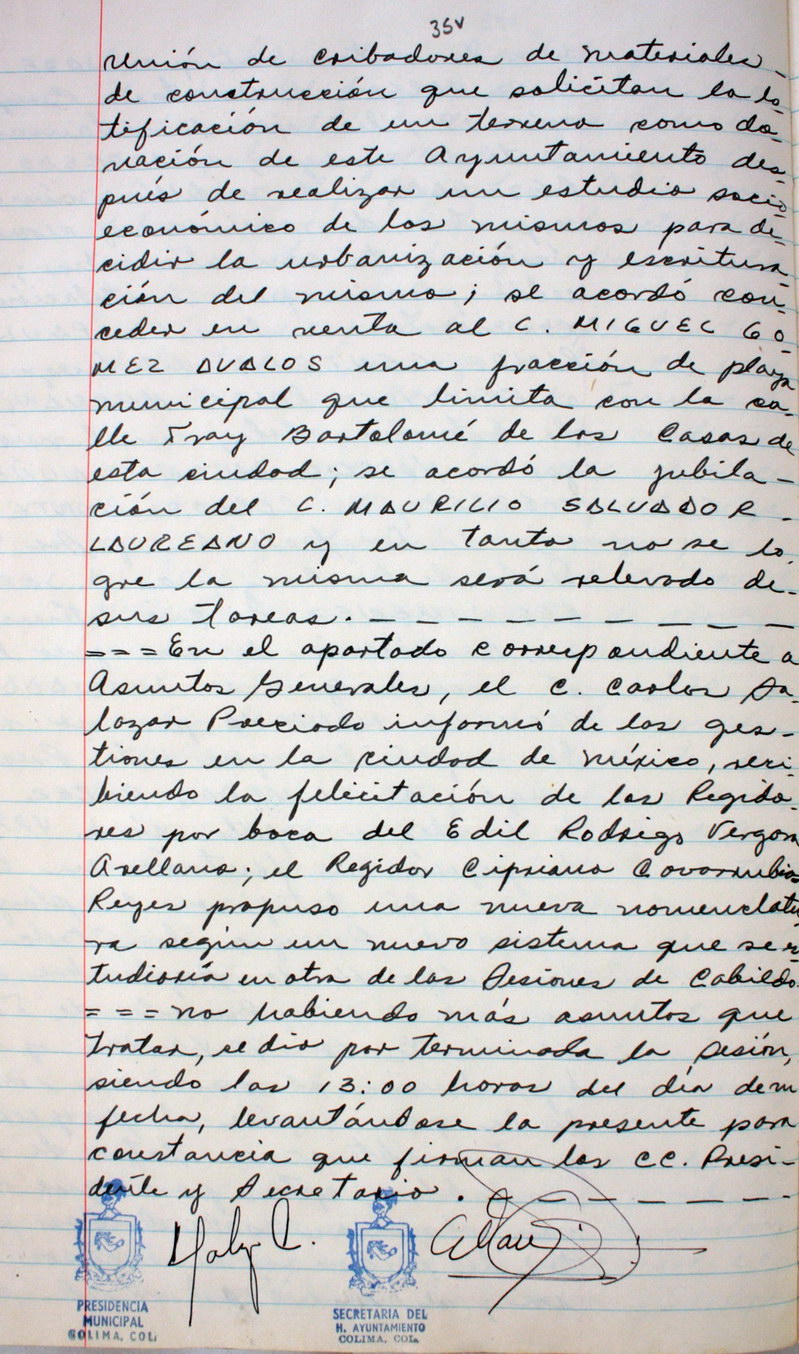 35v
unión de cribadores de materiales -
de construcción que solicitan la lo-
tificación de un terreno como do-
nación de este Ayuntamiento des-
pués de realizar un estudio socio
económico de los mismos para de-
cidir la urbanización y escritura-
ción del mismo; se acordó con-
ceder en venta al C. MIGUEL GO
MEZ AVALOS una fracción de playa
municipal que limita con la ca-
lle Fray Bartolomé de las Casas de
esta ciudad; se acordó la jubila-
ción del C. MAURILIO SALVADOR -
LAUREANO y en tanto no se lo-
gre la misma será relevado de-
sus tareas. - - - - - - - -
===En el apartado correspondiente a
Asuntos Generales, el C. Carlos Sa-
lazar Preciado informó de las ges-
tiones en la ciudad de México, reci-
biendo la felicitación de los Regido-
res por boca del Edil Rodrigo Vergara
Arellano; el Regidor Cipriano Covarrubias
Reyes propuso una nueva nomenclatu-
ra según un nuevo sistema que se es-
tudiaría en otra de las Sesiones de Cabildo.
===no habiendo más asuntos que
tratar, se dio por terminada la Sesión,
siendo las 13:00 horas del día de su
fecha, levantándose la presente para
constancia que firman los CC. Presi-
dente y Secretario. - - - - - - -
PRESIDENCIA
MUNICIPAL
COLIMA, COL.
SECRETARIA DEL
H. AYUNTAMIENTO
COLIMA, COL.